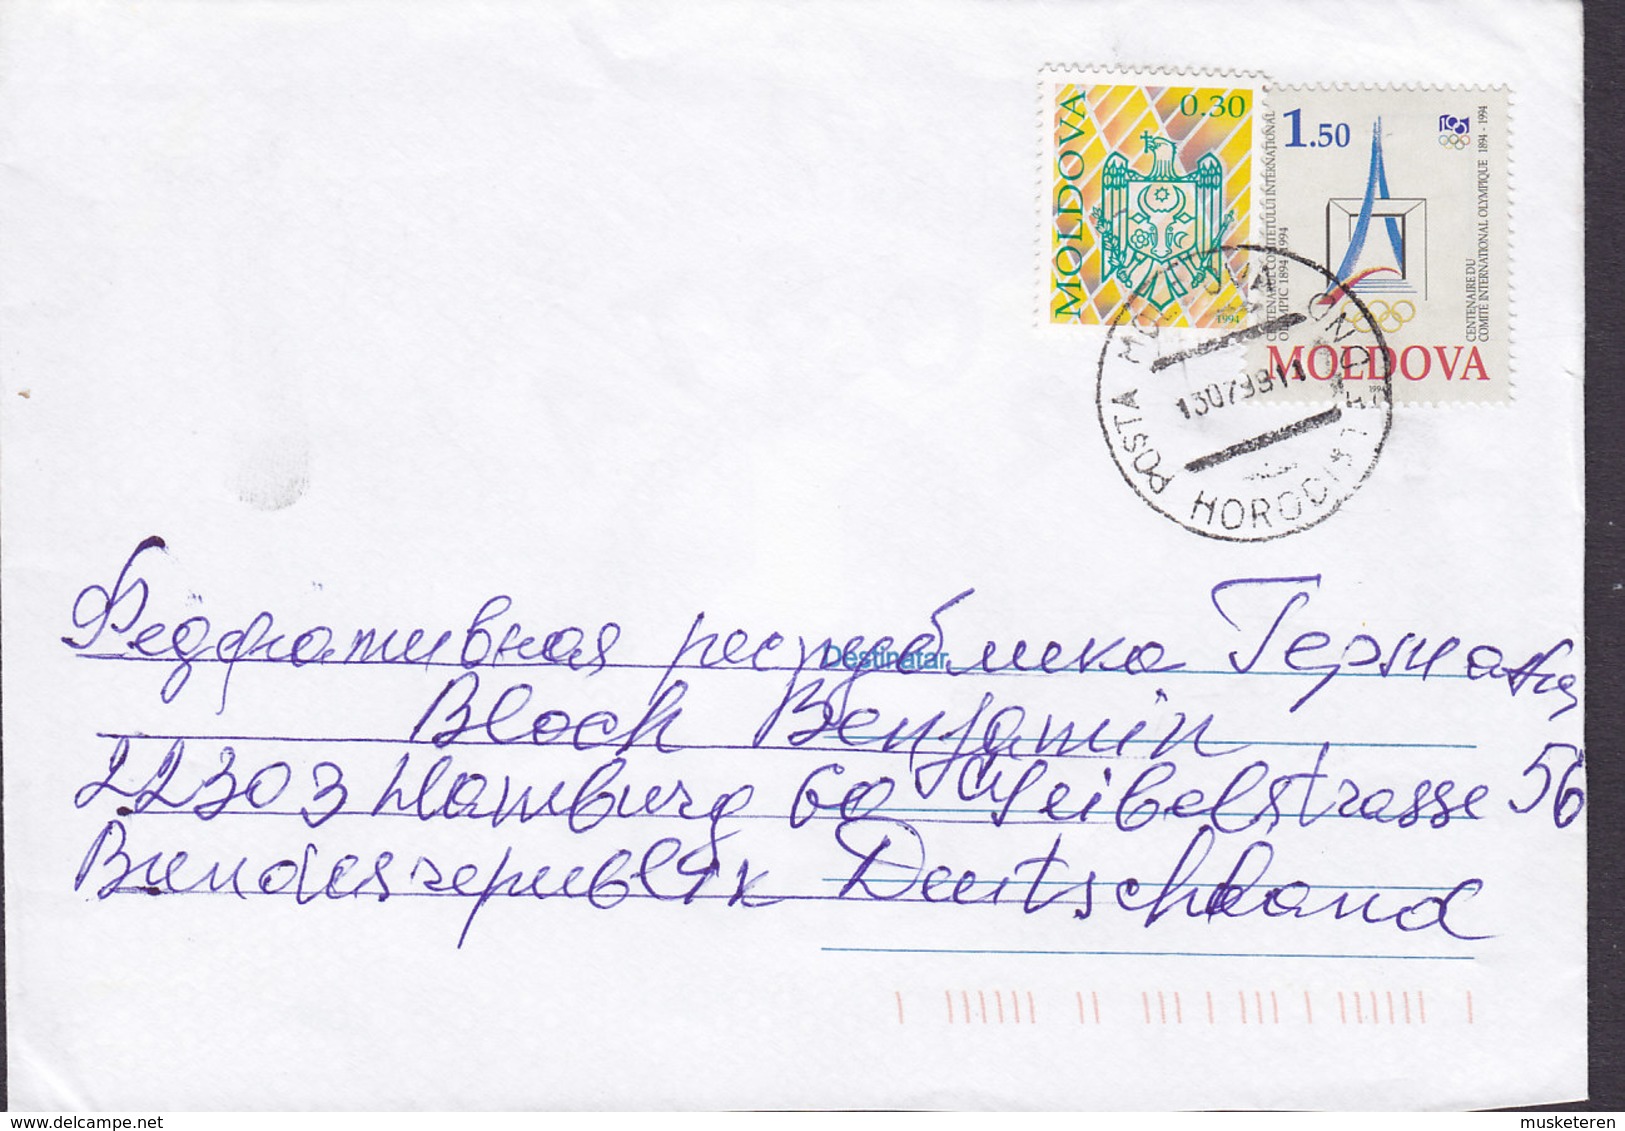 MOLDOVA
0.30
1994
1.50
CENTENARUL COMITETULUI INTERNAȚIONAL
OLIMPIC 1894-1994
CENTENAIRE DU
COMITÉ INTERNATIONAL OLYMPIQUE 1894 - 1994
MOLDOVA
1994
POSTA MOLDOVA
130799 11
Федфративная республика Германия
Destinatar
Bloch Benjamin
22303 Hamburg
56
Bundesrepublik Deutschland
musketeren